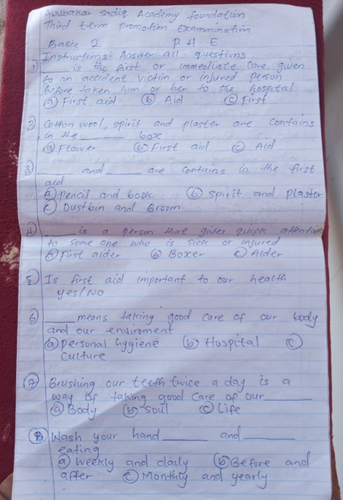 Abubakar Sadiq Academy foundation
Third term promotion Examination
Basic 2 P H E
Instructions: Answer All questions
1) ___ is the first or immediate care given
to an accident victim or injured person
before taken him or her to the hospital
(a) First aid (b) Aid (c) First
2) Cotton wool, spirit and plaster are contains
in the ___ box
(a) Flower (b) First aid (c) Aid
3) ___ and ___ are contains in the first
aid
(a) pencil and book (b) spirit and plaster
(c) Dustbin and Broom
4) ___ is a person that gives quick attention
to some one who is sick or injured
(a) First aider (b) Boxer (c) Aider
5) Is first aid important to our health
yes/No
6) ___ means taking good care of our body
and our enviroment
(a) personal hygiene (b) Hospital (c)
Culture
7) Brushing our teeth twice a day is a
way of taking good care of our ___
(a) Body (b) Soul (c) Life
8) Wash your hand ___ and ___
eating
(a) Weekly and daily (b) Before and
after (c) Monthly and yearly